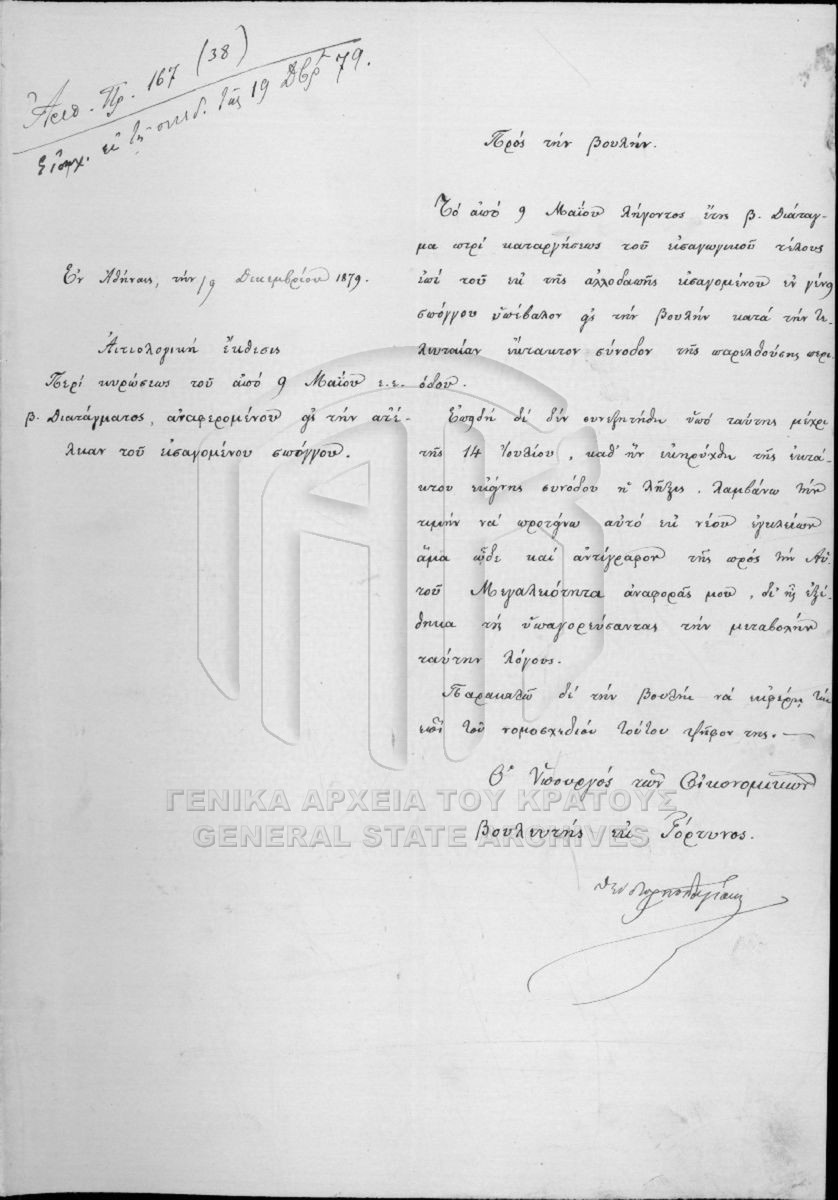 Ἀριθ. Πρ. 167 (38)
Εἰσηχ. ἐκ τῆς συνεδ. τῆς 19 Δβρ 79.
Πρὸς τὴν Βουλήν.
Ἐν Ἀθήναις, τὴν 19 Δεκεμβρίου 1879.
Αἰτιολογικὴ ἔκθεσις
Περὶ κυρώσεως τοῦ ἀπὸ 9 Μαΐου ε.ε.
β. Διατάγματος, ἀναφερομένου εἰς τὴν ἀτέ-
λειαν τοῦ εἰσαγομένου σπόγγου.
Τὸ ἀπὸ 9 Μαΐου λήγοντος ἔτους β. Διάταγ-
μα περὶ καταργήσεως τοῦ εἰσαγωγικοῦ τέλους
ἐπὶ τοῦ ἐκ τῆς ἀλλοδαπῆς εἰσαγομένου ἐν γένει
σπόγγου ὑπέβαλον εἰς τὴν βουλὴν κατὰ τὴν τε-
λευταίαν ἔκτακτον σύνοδον τῆς παρελθούσης περι-
όδου.
Ἐπειδὴ δὲ δὲν συνεζητήθη ὑπὸ ταύτης μέχρι
τῆς 14 Ἰουλίου, καθ' ἣν ἐκηρύχθη τῆς ἐκτά-
κτου ἐκείνης συνόδου ἡ λῆξις, λαμβάνω τὴν
τιμὴν νὰ προτείνω αὐτὸ ἐκ νέου ἐγκλείων
ἅμα ὧδε καὶ ἀντίγραφον τῆς πρὸς τὴν Αὐ-
τοῦ Μεγαλειότητα ἀναφορᾶς μου, δι' ἧς ἐξέ-
θηκα τοὺς ὑπαγορεύσαντας τὴν μεταβολὴν
ταύτην λόγους.
Παρακαλῶ δὲ τὴν βουλὴν νὰ ἐκφέρῃ τὴν
ἐπὶ τοῦ νομοσχεδίου τούτου ψῆφόν της.—
Ὁ Ὑπουργὸς τῶν Οἰκονομικῶν
Βουλευτὴς ἐκ Γόρτυνος.
ΓΕΝΙΚΑ ΑΡΧΕΙΑ ΤΟΥ ΚΡΑΤΟΥΣ
GENERAL STATE ARCHIVES